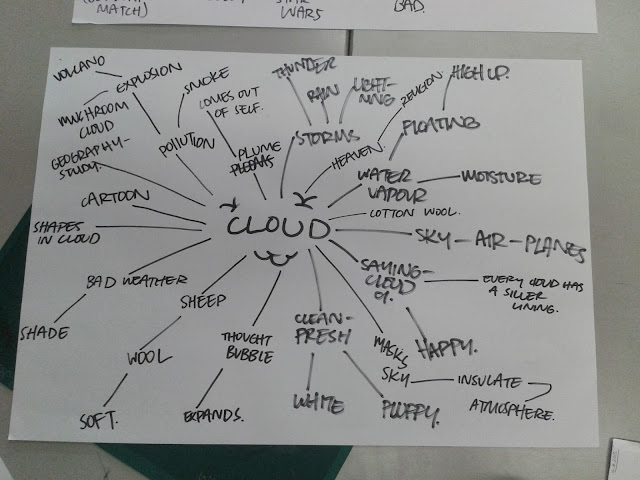 MATCH)
STAR
WARS
BAD.
VOLCANO
EXPLOSION
MUCHROOM
CLOUD
GEOGRAPHY-
STUDY.
POLLUTION
SMOKE
COMES OUT
OF SELF.
PLUME
THUNDER
RAIN
LIGHT-
NING
STORMS
RELIGION
HEAVEN
HIGH UP.
FLOATING
WATER
VAPOUR
MOISTURE
COTTON WOOL.
CARTOON
SHAPES
IN CLOUD
CLOUD
SKY-AIR-PLANES
SAYING-
CLOUD
9.
EVERY CLOUD HAS
A SILLER
LINING.
HAPPY.
BAD WEATHER
SHADE
SHEEP
WOOL
SOFT.
THOUGHT
BUBBLE
EXPANDS.
CLEAN-
FRESH
WHITE
FLUFFY.
MASKS
SKY
INSULATE
ATMOSPHERE.